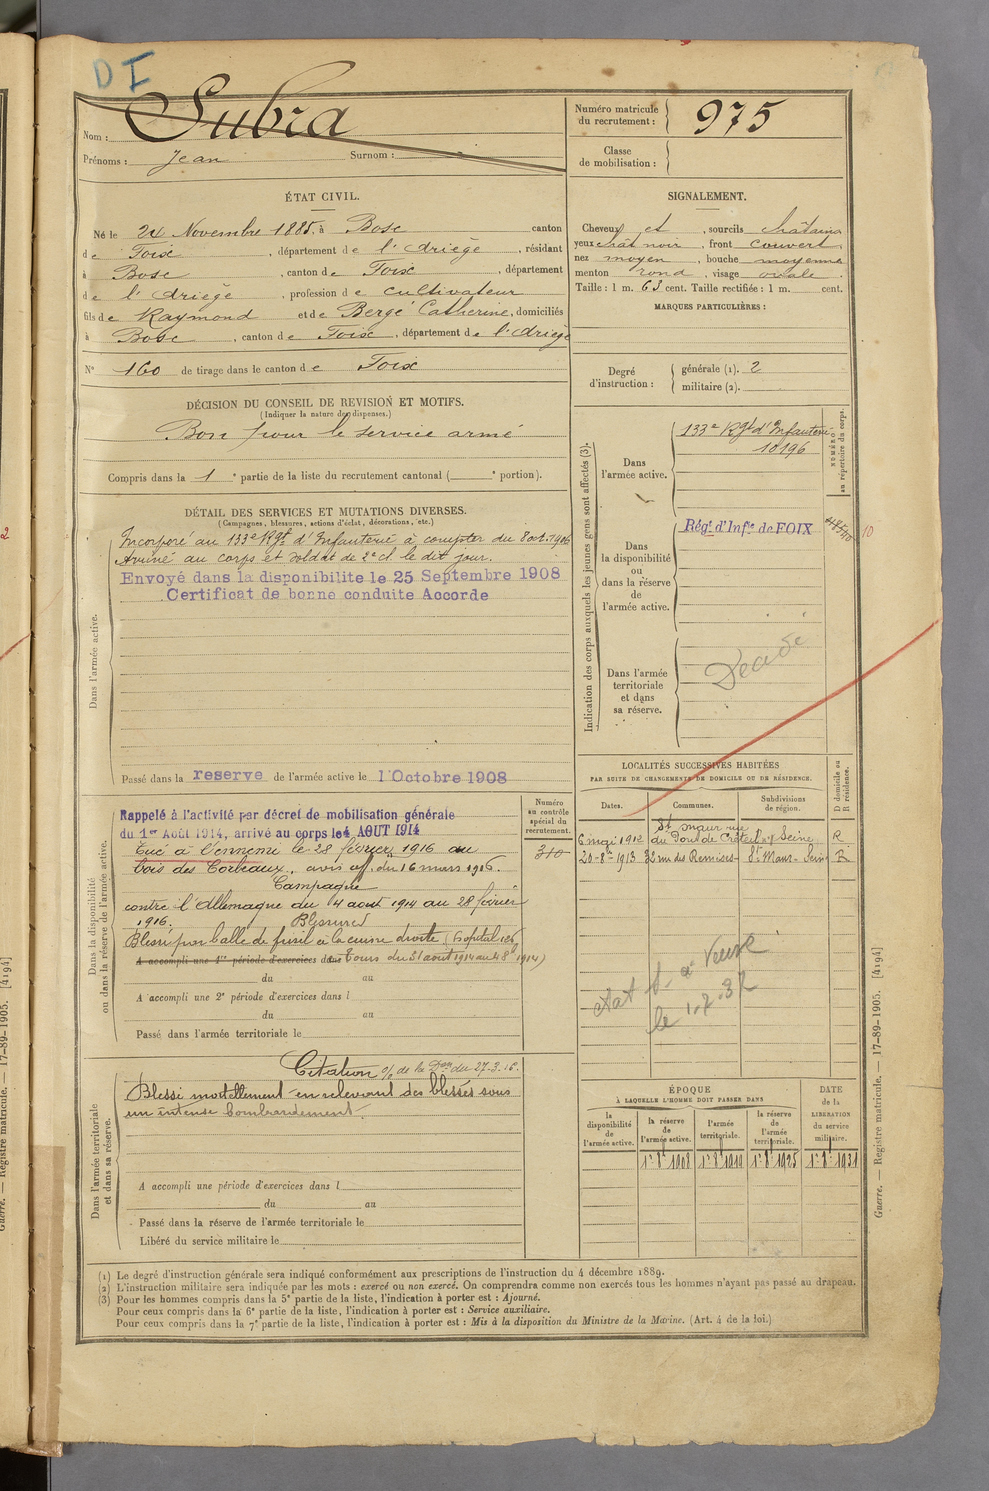 DI
Nom : Subra
Prénoms : Jean Surnom :
Numéro matricule du recrutement : 975
Classe de mobilisation :
ÉTAT CIVIL.
Né le 24 Novembre 1885, à Bosc canton
de Foix, département de l'Ariège, résidant
à Bosc, canton de Foix, département
de l'Ariège, profession de cultivateur
fils de Raymond et de Bergé Catherine, domiciliés
à Bosc, canton de Foix, département de l'Ariège
N° 160 de tirage dans le canton de Foix
SIGNALEMENT.
Cheveux et, sourcils châtains
yeux chât noir, front couvert
nez moyen, bouche moyenne
menton rond, visage ovale.
Taille : 1 m. 63 cent. Taille rectifiée : 1 m. cent.
MARQUES PARTICULIÈRES :
Degré d'instruction : générale (1). 2
militaire (2).
DÉCISION DU CONSEIL DE REVISION ET MOTIFS.
(Indiquer la nature des dispenses.)
Bon pour le service armé
Compris dans la 1e partie de la liste du recrutement cantonal ( e portion).
DÉTAIL DES SERVICES ET MUTATIONS DIVERSES.
(Campagnes, blessures, actions d'éclat, décorations, etc.)
Dans l'armée active.
Incorporé au 133e Rgt d'Infanterie à compter du 8 oct. 1906
Arrivé au corps et soldat de 2e cl. le dit jour.
Envoyé dans la disponibilite le 25 Septembre 1908
Certificat de bonne conduite Accorde
Passé dans la reserve de l'armée active le 1 Octobre 1908
Indication des corps auxquels les jeunes gens sont affectés (3).
NUMÉRO au répertoire du corps.
Dans l'armée active.
133e Rgt d'Infanterie
10196
Dans la disponibilité ou dans la réserve de l'armée active.
Régt d'Infie de FOIX
10
Dans l'armée territoriale et dans sa réserve.
Décédé
LOCALITÉS SUCCESSIVES HABITÉES
PAR SUITE DE CHANGEMENTS DE DOMICILE OU DE RÉSIDENCE.
D domicile ou R résidence.
Dates. Communes. Subdivisions de région.
6 mai 1912 St Maur rue du Pont de Créteil Seine R
20-8-1913 32 rue des Remises St Maur Seine R
Dans la disponibilité ou dans la réserve de l'armée active.
Numéro au contrôle spécial du recrutement.
310
Rappelé à l'activité par décret de mobilisation générale
du 1er Août 1914, arrivé au corps le 4 AOUT 1914
Tué à l'ennemi le 28 février 1916 au
bois des Corbeaux, avis off. du 16 mars 1916.
Campagne
contre l'Allemagne du 4 août 1914 au 28 février
1916. Blessures
Blessé par balle de fusil à la cuisse droite (hopital
A accompli une 1re période d'exercices dans Tours du 31 août 1914 au 1914)
du au
A accompli une 2e période d'exercices dans l
du au
Passé dans l'armée territoriale le
le 1.7.32
Dans l'armée territoriale et dans sa réserve.
Citation o/ de la Don du 27.3.16.
Blessé mortellement en relevant des blessés sous
un intense bombardement.
A accompli une période d'exercices dans l
du au
Passé dans la réserve de l'armée territoriale le
Libéré du service militaire le
ÉPOQUE
À LAQUELLE L'HOMME DOIT PASSER DANS
DATE de la LIBÉRATION du service militaire.
la disponibilité de l'armée active. la réserve de l'armée active. l'armée territoriale. la réserve de l'armée territoriale.
1-8-1908 1-8-1919 1-8-1925 1-8-1931
(1) Le degré d'instruction générale sera indiqué conformément aux prescriptions de l'instruction du 4 décembre 1889.
(2) L'instruction militaire sera indiquée par les mots : exercé ou non exercé. On comprendra comme non exercés tous les hommes n'ayant pas passé au drapeau.
(3) Pour les hommes compris dans la 5e partie de la liste, l'indication à porter est : Ajourné.
Pour ceux compris dans la 6e partie de la liste, l'indication à porter est : Service auxiliaire.
Pour ceux compris dans la 7e partie de la liste, l'indication à porter est : Mis à la disposition du Ministre de la Marine. (Art. 4 de la loi.)
Guerre. — Registre matricule. — 17-89-1905. [4194]
Guerre. — Registre matricule. — 17-89-1905. [4194]